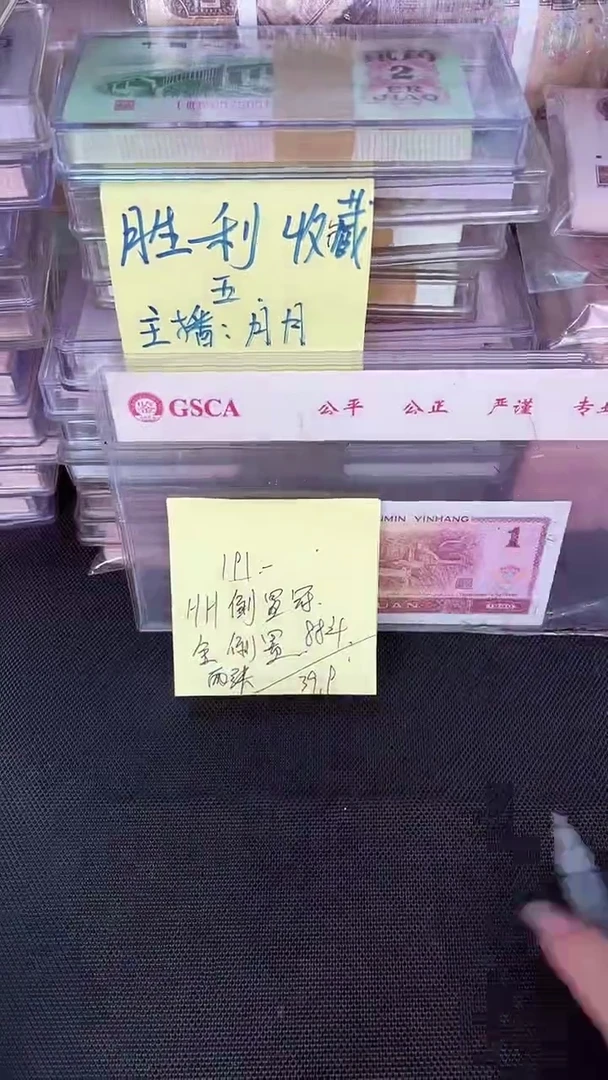 2
ER
JIAO
胜利 收藏
五
主播：月月
GSCA 公平 公正 严谨
MIN YINHANG
1
UAN
1990
191.-
HH倒置冠.
全倒置.884.
两张 39.9